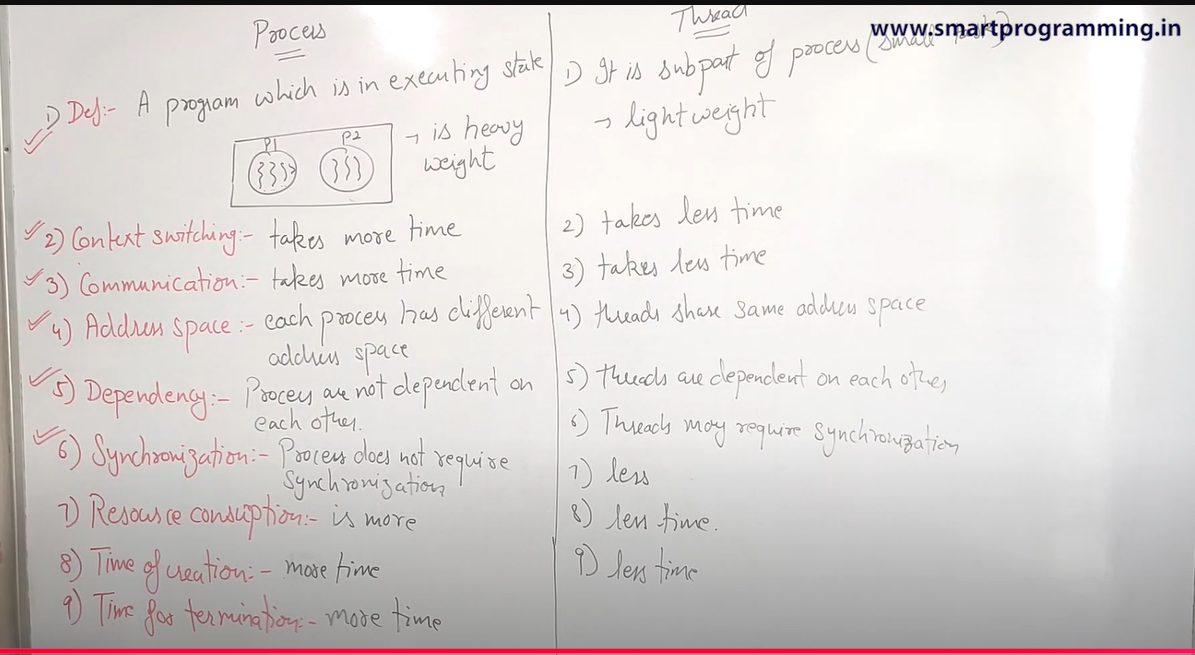 www.smartprogramming.in
Process
1) Def:- A program which is in executing state
P1 P2
→ is heavy
weight
2) Context switching:- takes more time
3) Communication:- takes more time
4) Address space:- each process has different
address space
5) Dependency:- Process are not dependent on
each other.
6) Synchronization:- Process does not require
Synchronization
7) Resource consuption:- is more
8) Time of creation:- more time
9) Time for termination:- more time
Thread
1) It is subpart of process (small task)
→ lightweight
2) takes less time
3) takes less time
4) threads share same address space
5) threads are dependent on each other
6) Threads may require synchronization
7) less
8) less time.
9) less time